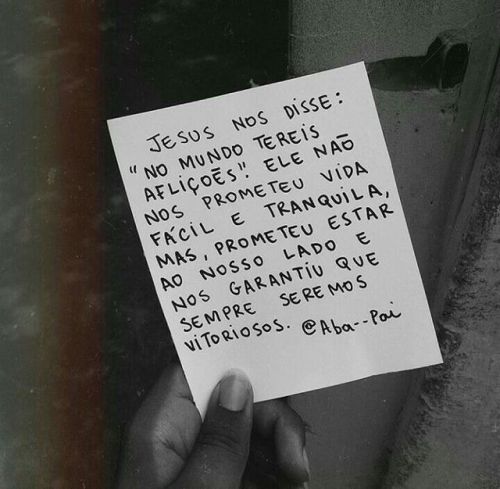 JESUS NOS DISSE:
"NO MUNDO TEREIS
AFLIÇOẼS". ELE NÃO
NOS PROMETEU VIDA
FÁCIL E TRANQUILA,
MAS, PROMETEU ESTAR
AO NOSSO LADO E
NOS GARANTIU QUE
SEMPRE SEREMOS
VITORIOSOS. @Aba--Pai